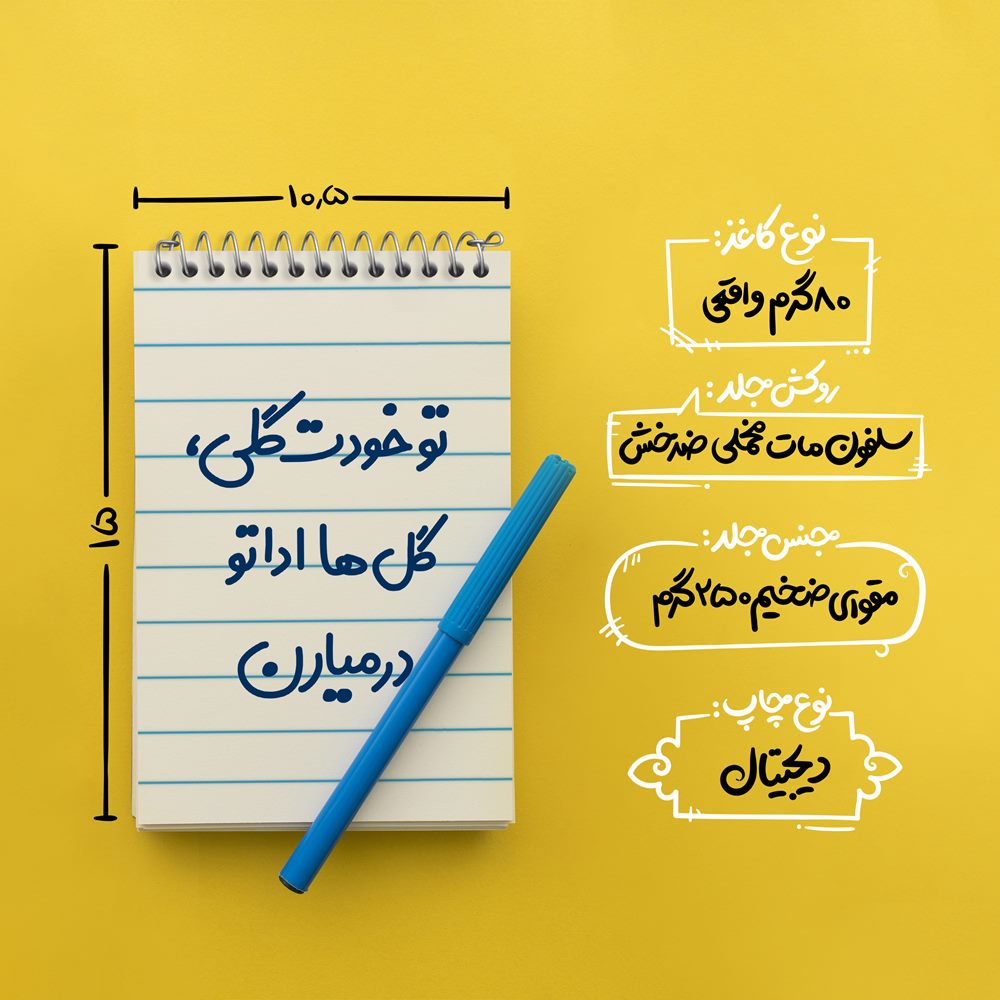 ۱۰٫۵
۱۵
تو خودت گلی،
گل ها اداتو
درمیارن
نوع کاغذ:
۸۰گرم واقعی
روکش جلد:
سلفون مات مخملی ضدخش
جنس جلد:
مقوای ضخیم ۲۵۰گرم
نوع چاپ:
دیجیتال